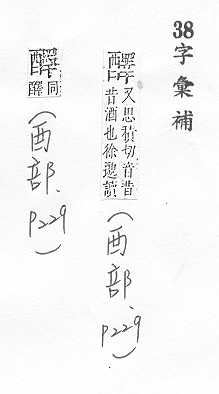 38字彙補
醳又思積切音昔
昔酒也徐邈讀
(酉部、P229)
同
醳
(酉部、P229)